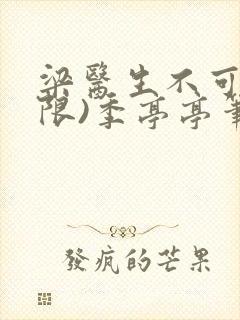 梁醫生不可
限)季亭亭筆
發瘋的芒果